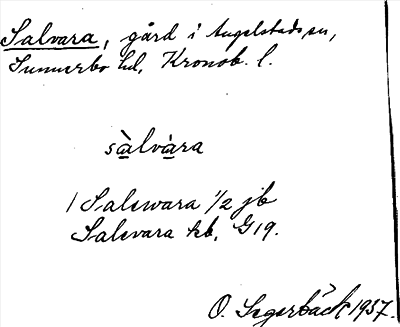 Salvara, gård i Angelstads sn,
Sunnerbo hd, Kronob. l.
sàlvàra
1 Salswara 1/2 jb
Salsvara kb, G19.
O. Segerbäck 1937.